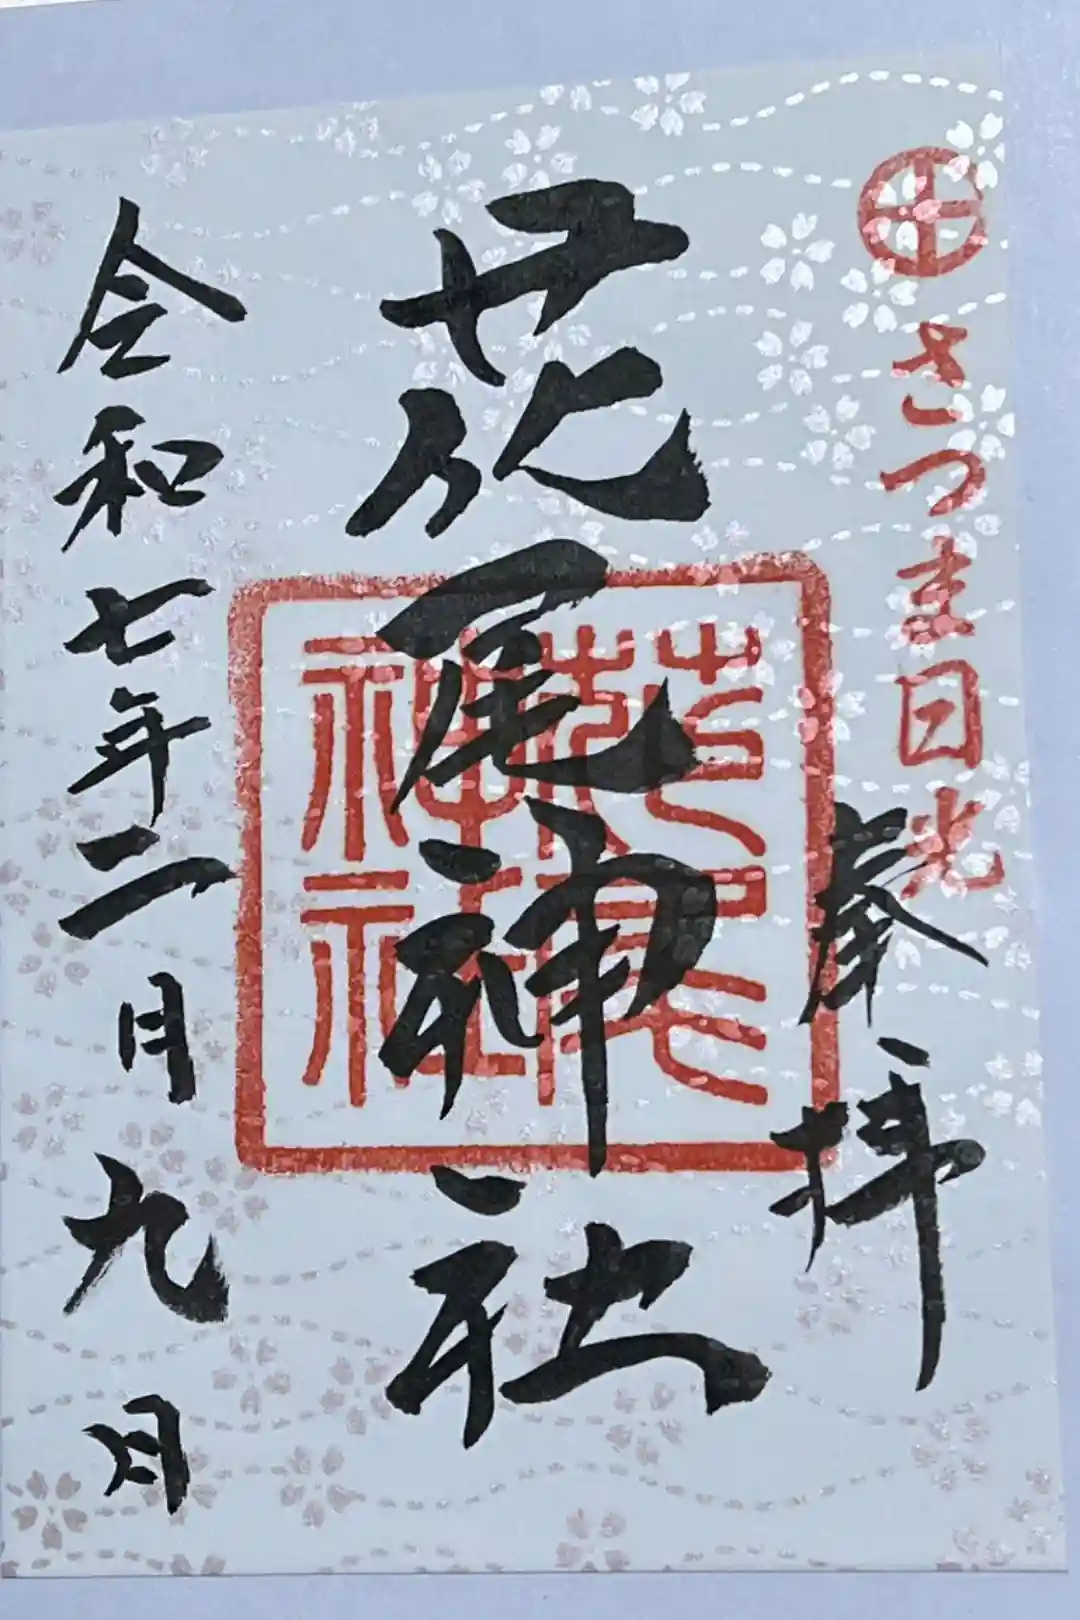 さつま日光
奉拝
花尾神社
花尾
神社
令和七年二月九日